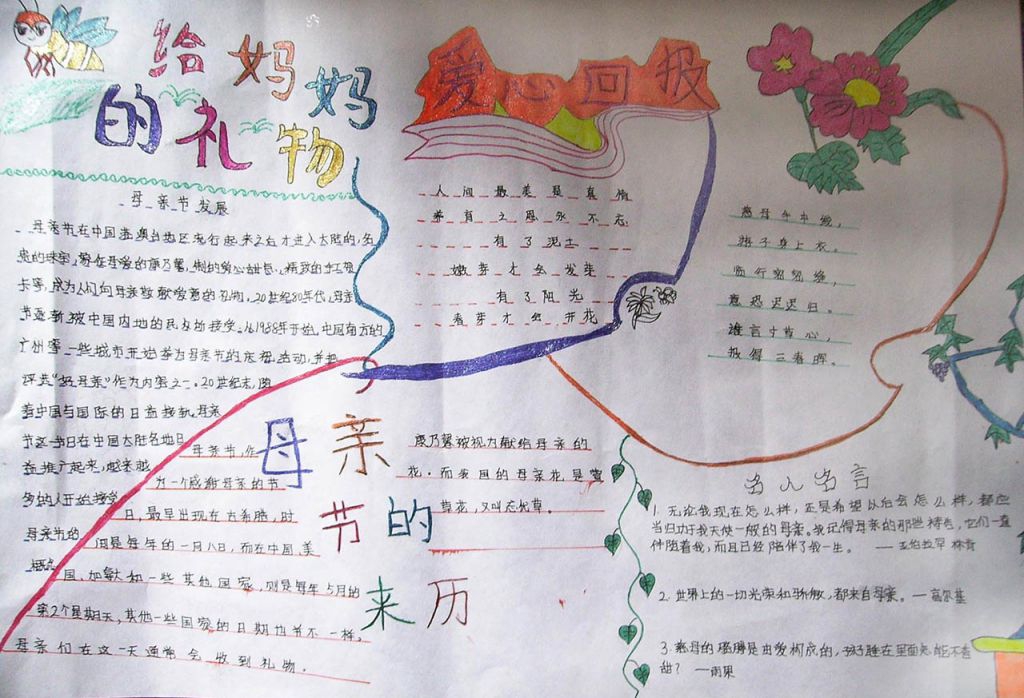 给妈妈
的礼物
母亲节发展
母亲节在中国港澳台地区流行起来之后才进入大陆的,名
贵的珠宝,象征母爱的康乃馨,制的爱心甜包,精致的手工贺
卡等,成为人们向母亲献爱意的礼物,20世纪80年代,母亲
节逐渐被中国内地的民众所接受。从1988年开始,中国南方的
广州等一些城市开始举办母亲节的庆祝活动,并把
评选“好母亲”作为内容之一。20世纪末,随
着中国与国际的日益接轨,母亲
节这一节日在中国大陆各地日
益推广起来,越来越
多的人开始接受
母亲节的
概念
爱心回报
人间最美是真情
养育之恩永不忘
有了泥土
嫩芽才会发芽
有了阳光
春芽才会开花
慈母手中线,
游子身上衣。
临行密密缝,
意恐迟迟归。
谁言寸草心,
报得三春晖。
母亲
节的
来历
母亲节,作
为一个感谢母亲的节
日,最早出现在古希腊,时
间是每年的一月八日,而在中国、美
国、加拿大和一些其他国家,则是每年5月的
第2个星期天,其他一些国家的日期也并不一样。
母亲们在这一天通常会收到礼物。
康乃馨被视为献给母亲的
花。而我国的母亲花是萱
草花,又叫忘忧草。
名人名言
1.无论我现在怎么样,还是希望以后会怎么样,都应
当归功于我天使一般的母亲。我记得母亲的那些祷告,它们一直
伴随着我,而且已经陪伴了我一生。——亚伯拉罕 林肯
2.世界上的一切光荣和骄傲,都来自母亲。—高尔基
3.慈母的胳膊是由爱构成的,孩子睡在里面怎能不香
甜?—雨果